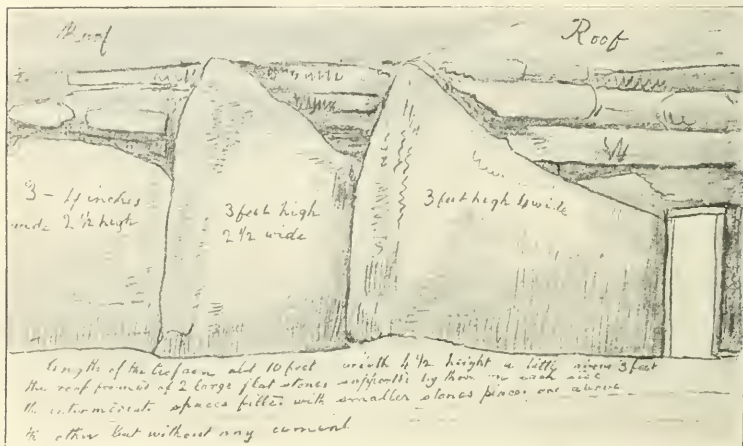 Roof
Roof
3 - 4 inches
wide 2 1/2 high
3 feet high
2 1/2 wide
3 feet high 4 wide
length of the abt 10 feet width 4 1/2 height a little over 3 feet
the roof formed of 2 large flat stones supported by three on each side
the intermediate spaces filled with smaller stones placed one above
the other but without any cement